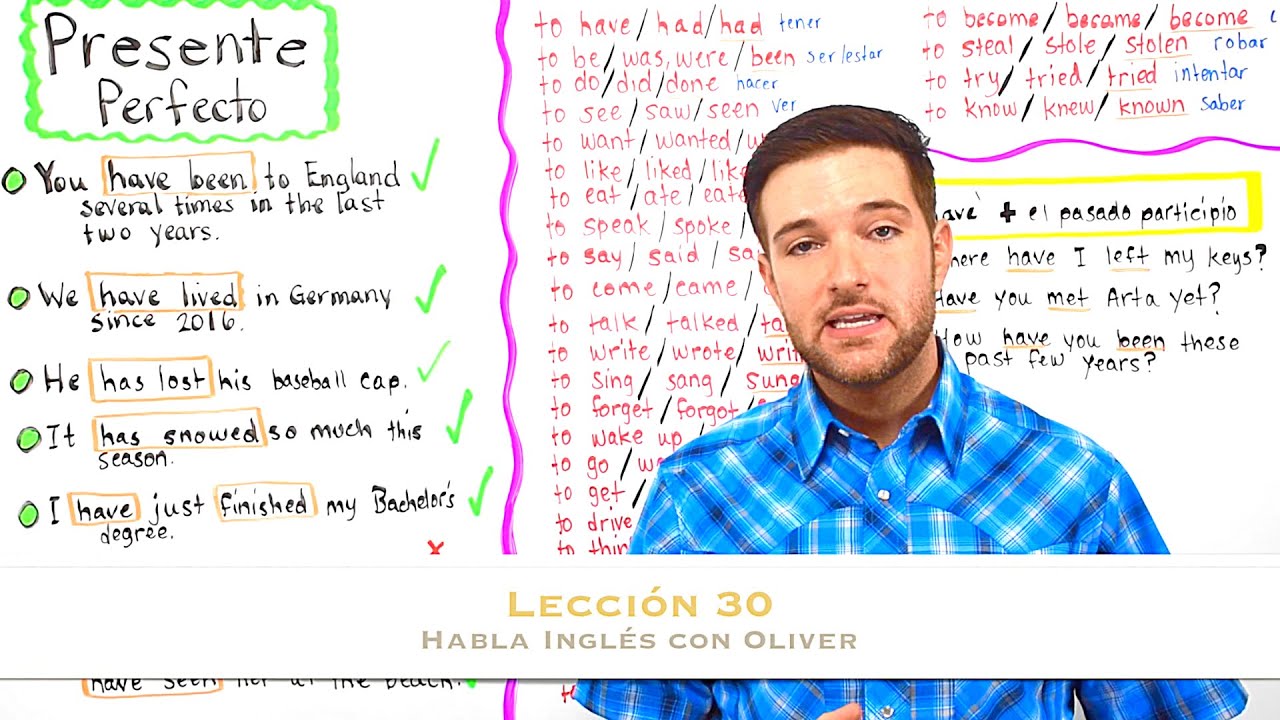 Presente
Perfecto
You have been to England
several times in the last
two years.
We have lived in Germany
since 2016.
He has lost his baseball cap.
It has snowed so much this
season.
I have just finished my Bachelor's
degree.
have seen her at the beach.
to have / had / had tener
to be / was, were / been ser/estar
to do / did / done hacer
to see / saw / seen ver
to want / wanted /
to like / liked /
to eat / ate /
to speak / spoke /
to say / said /
to come / came /
to talk / talked /
to write / wrote /
to sing / sang / sung
to forget / forgot /
to wake up
to go /
to get /
to drive
to
to become / became / become
to steal / stole / stolen robar
to try / tried / tried intentar
to know / knew / known saber
+ el pasado participio
have I left my keys?
you met Arta yet?
have you been these
past few years?
Lección 30
Habla Inglés con Oliver